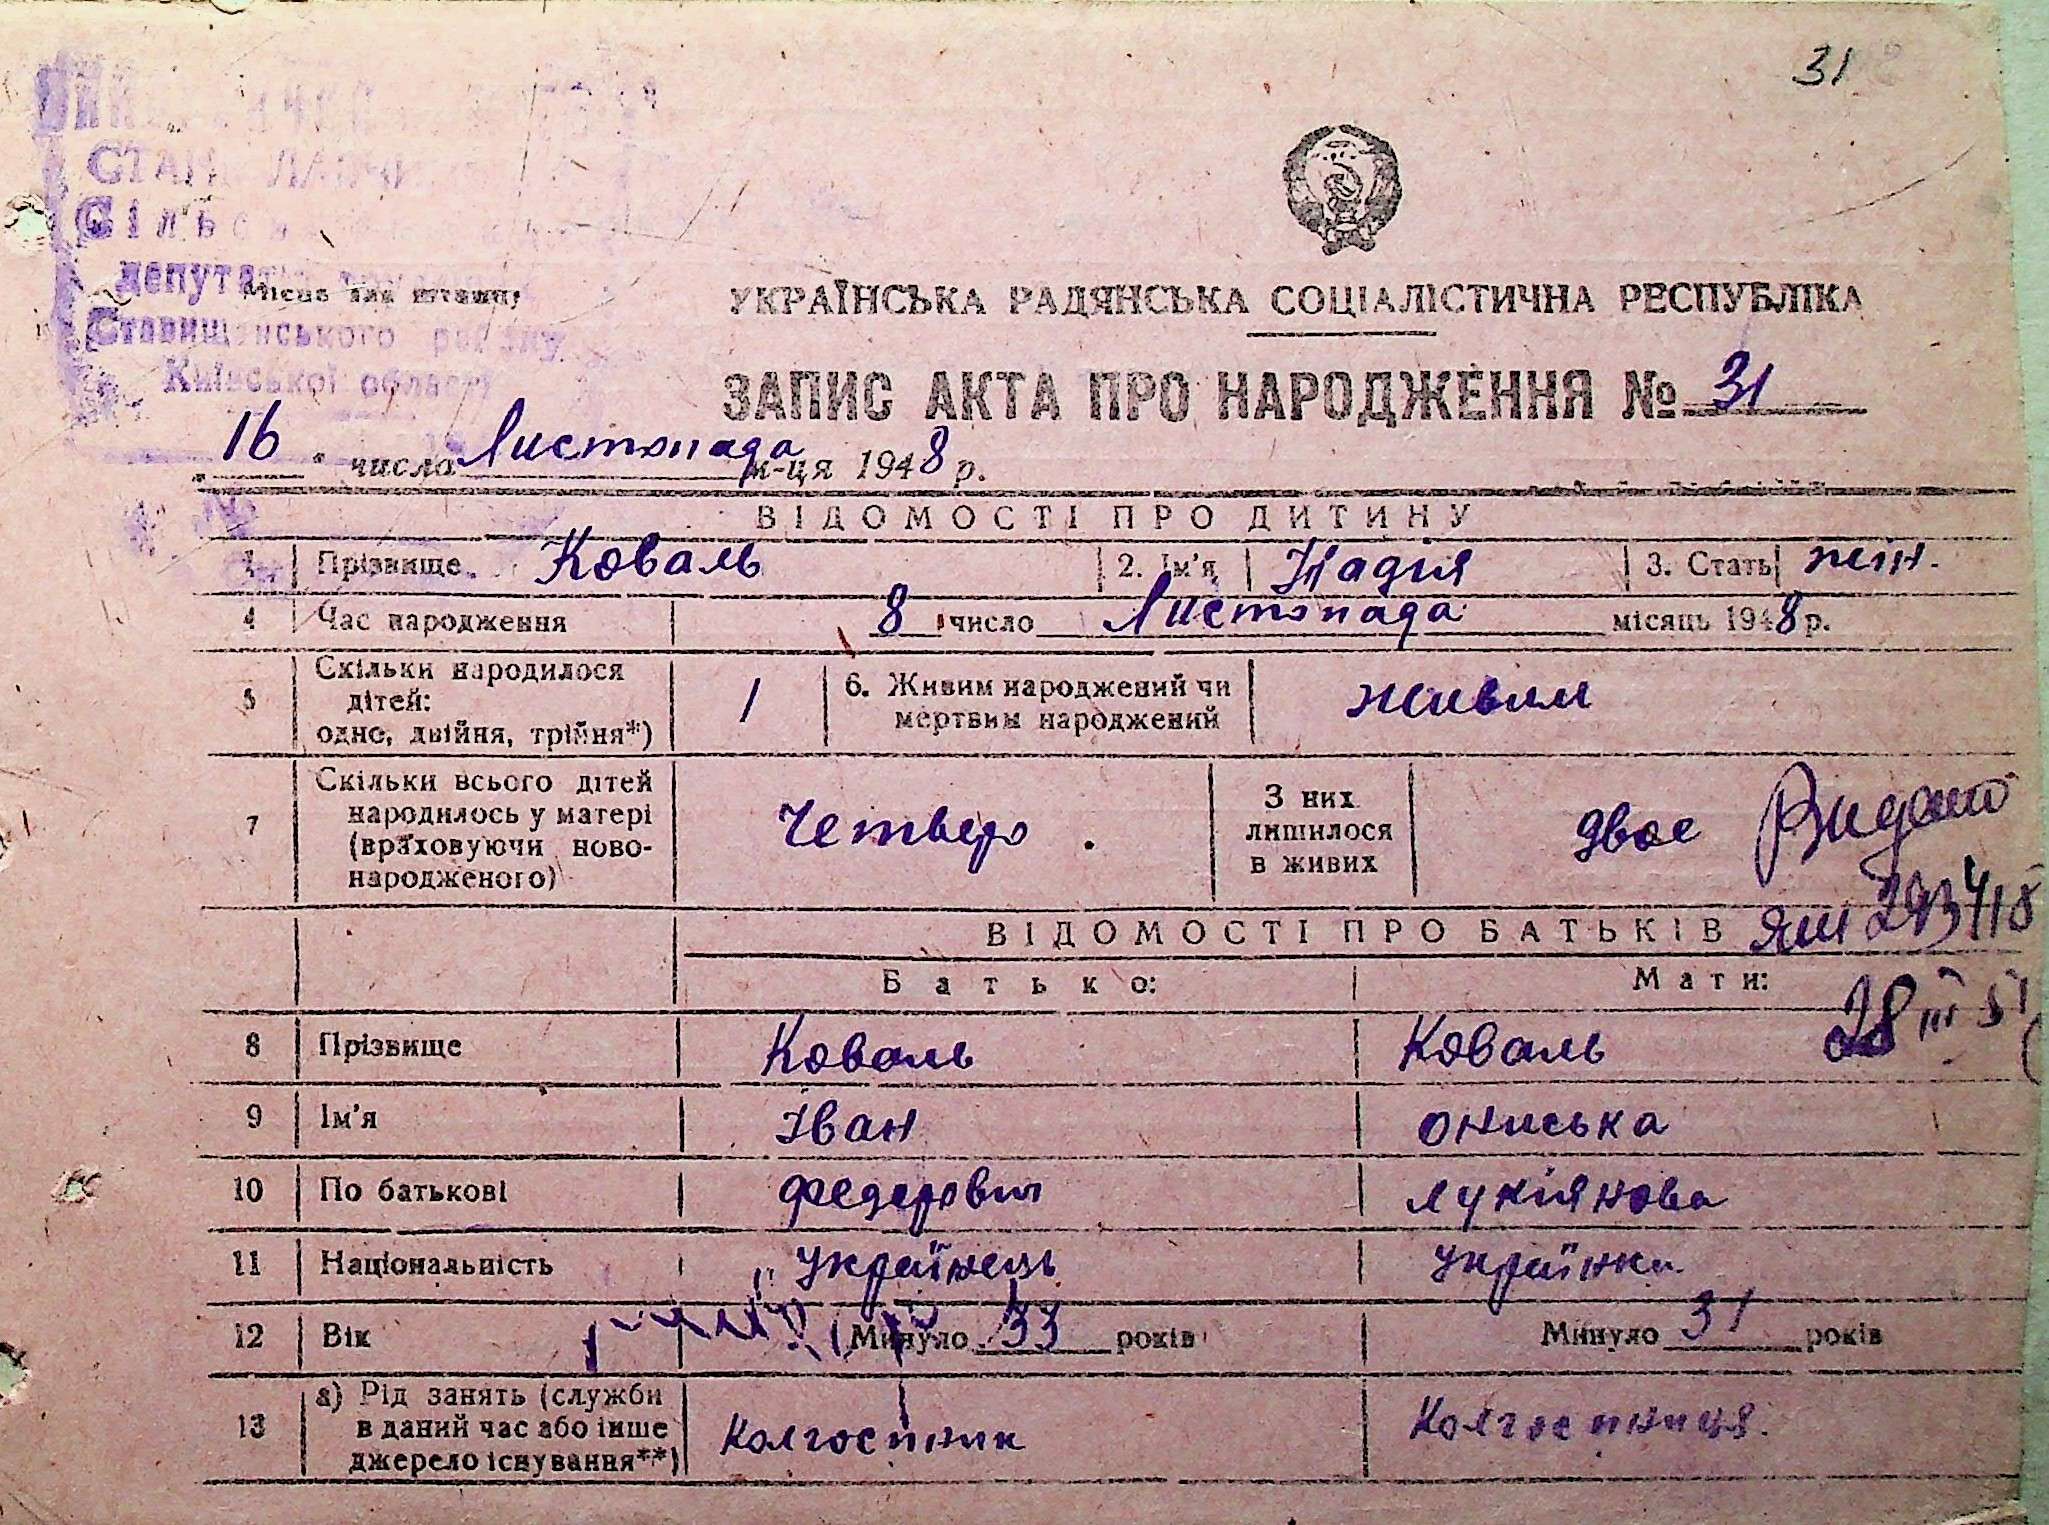 31
Сільс
депутатів
Місце для штампу
Ставищенського району
Київської області
УКРАЇНСЬКА РАДЯНСЬКА СОЦІАЛІСТИЧНА РЕСПУБЛІКА
ЗАПИС АКТА ПРО НАРОДЖЕННЯ № 31
„16" число Листопада м-ця 1948 р.
ВІДОМОСТІ ПРО ДИТИНУ
1 Прізвище Коваль 2. Ім'я Надія 3. Стать жін.
4 Час народження 8 число Листопада місяць 1948 р.
5 Скільки народилося
дітей:
одно, двійня, трійня*) 1 6. Живим народжений чи
мертвим народжений живим
7 Скільки всього дітей
народилось у матері
(враховуючи ново-
народженого) Четверо. З них
лишилося
в живих двоє Видано
ВІДОМОСТІ ПРО БАТЬКІВ
Батько: Мати:
28 III 51
8 Прізвище Коваль Коваль
9 Ім'я Іван Ониська
10 По батькові Федерович Лукіянова
11 Національність Українець Українка
12 Вік Минуло 33 років Минуло 31 років
13 а) Рід занять (служби
в даний час або інше
джерело існування**) Колгоспник Колгоспниця.